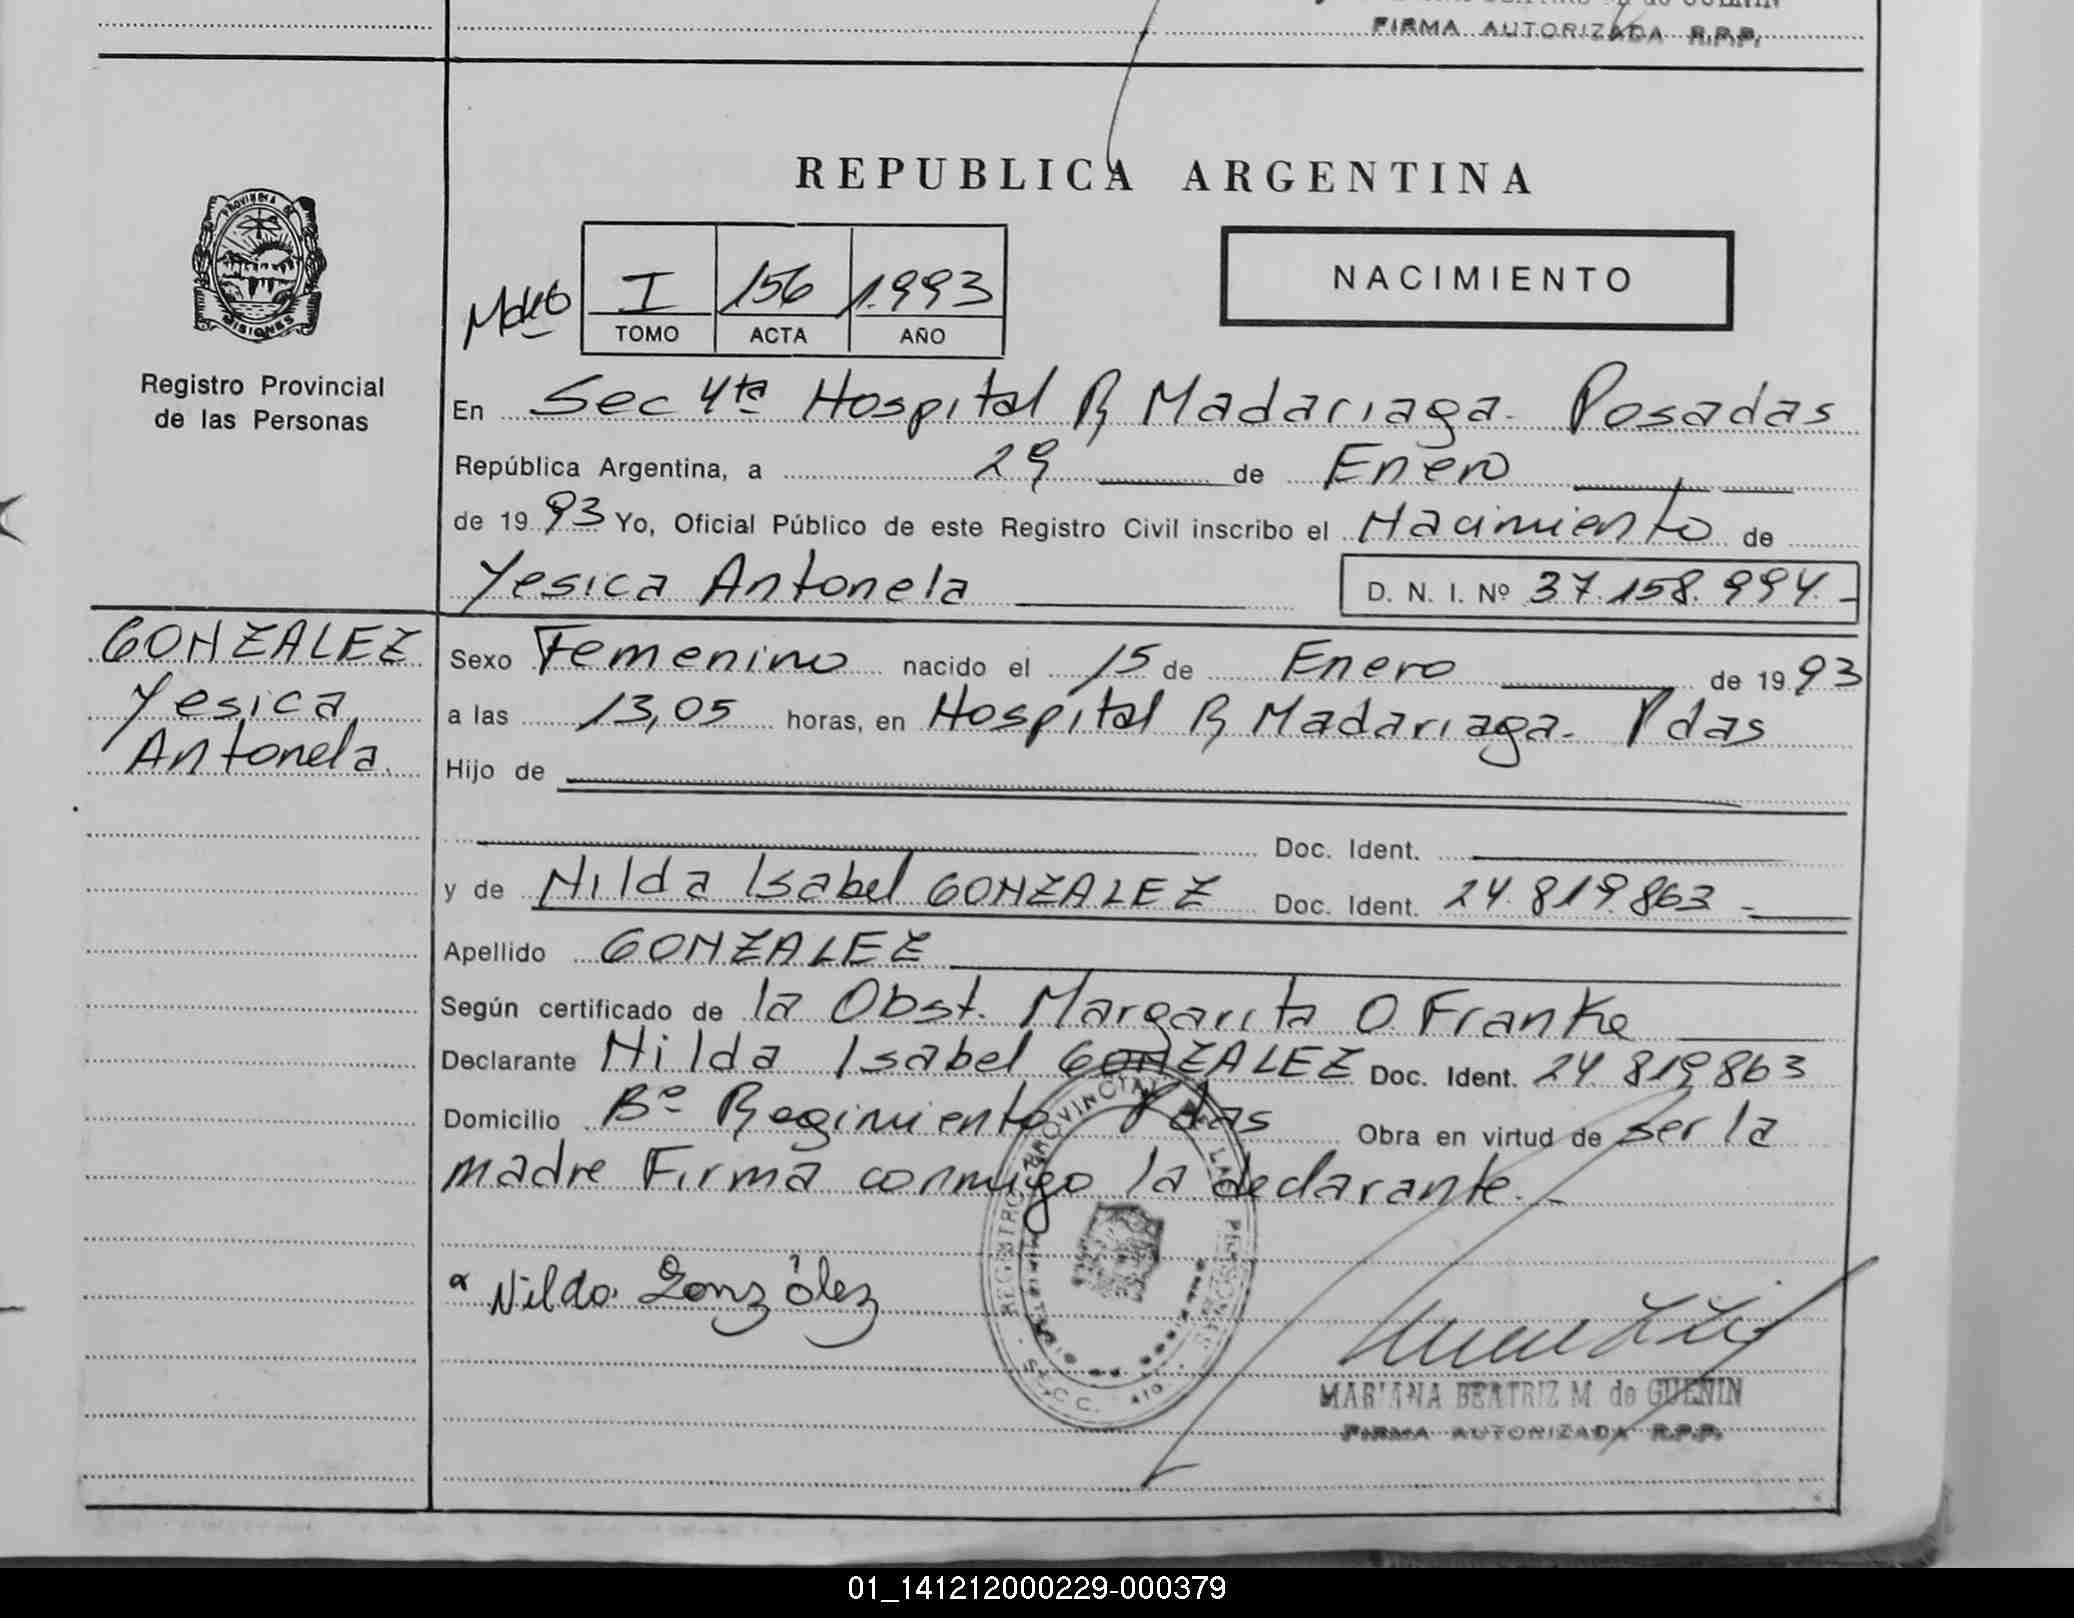 FIRMA AUTORIZADA R.P.P.
REPUBLICA ARGENTINA
PROVINCIA DE
MISIONES
Registro Provincial
de las Personas
I 156 1.993
TOMO ACTA AÑO
NACIMIENTO
En Sec 4ta Hospital R Madariaga. Posadas
República Argentina, a 29 de Enero
de 1993 Yo, Oficial Público de este Registro Civil inscribo el Nacimiento de
Yesica Antonela D. N. I. Nº 37.158.994.-
GONZALEZ
Yesica
Antonela.
Sexo Femenino nacido el 15 de Enero de 1993
a las 13,05 horas, en Hospital R Madariaga. Pdas
Hijo de
Doc. Ident.
y de Nilda Isabel GONZALEZ Doc. Ident. 24.819.863.-
Apellido GONZALEZ
Según certificado de la Obst. Margarita O. Franke
Declarante Nilda Isabel GONZALEZ Doc. Ident. 24.819.863
Domicilio Bº Regimiento Pdas Obra en virtud de ser la
madre Firma conmigo la declarante.-
Nilda González
REGISTRO PROVINCIAL DE LAS PERSONAS
MARIANA BEATRIZ M. de GUENIN
FIRMA AUTORIZADA R.P.P.
01_141212000229-000379